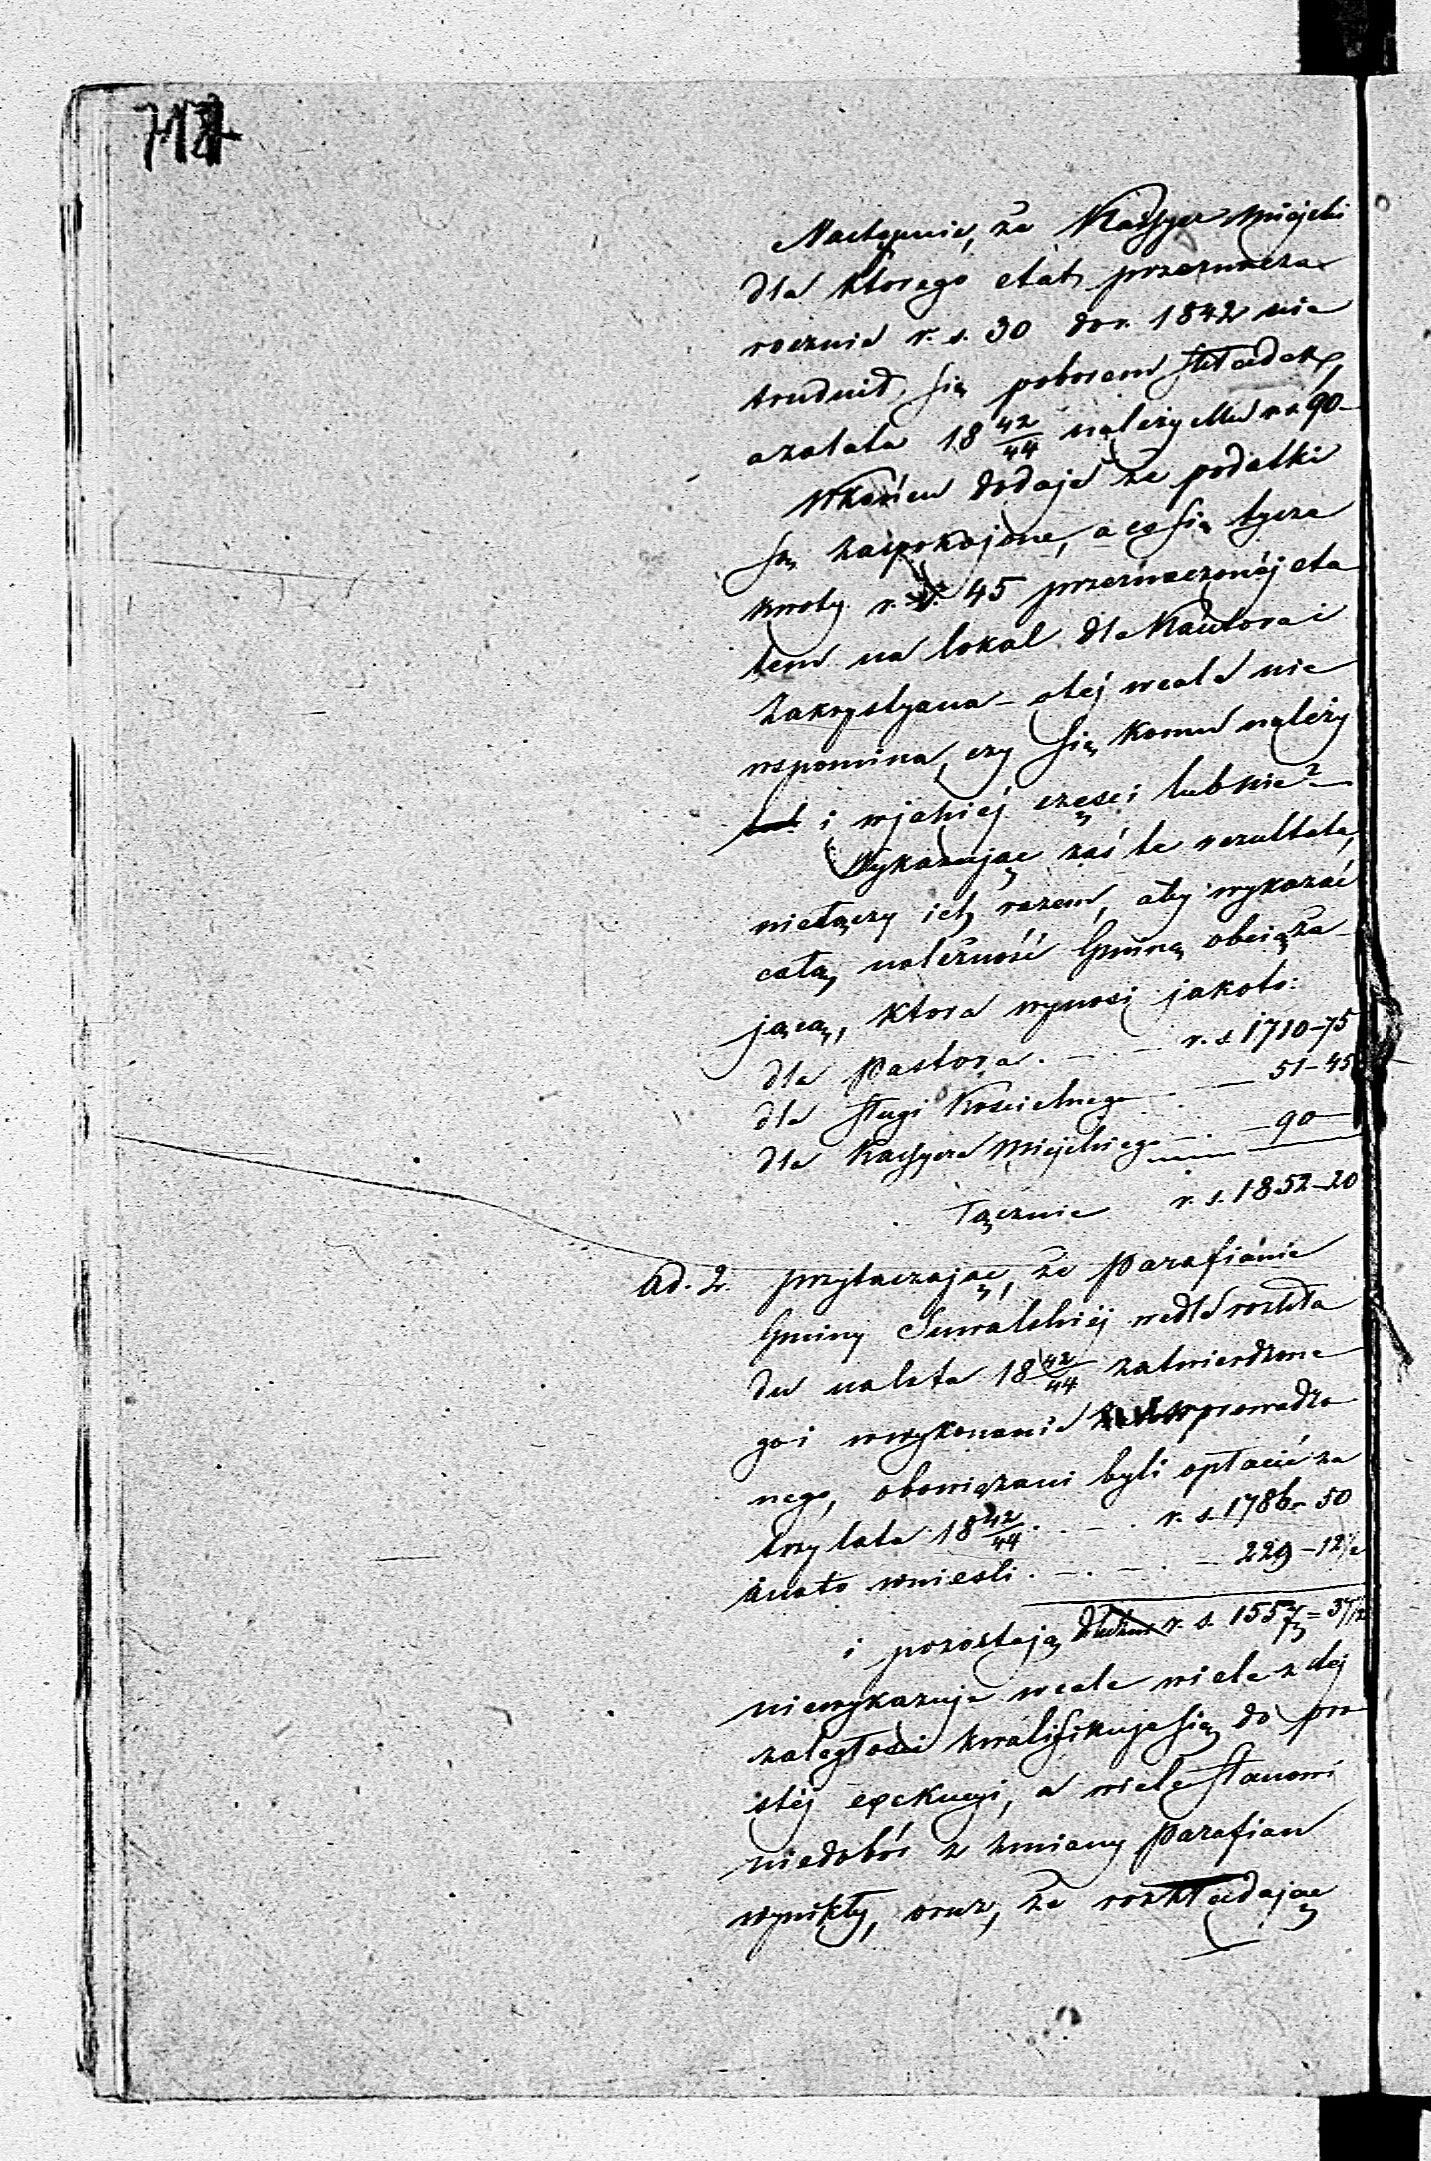 Następnie, że Kassyer Miejski
dla ktorego etat przeznacza
rocznie r. s. 30 do r. 1842 nie
trudnił się poborem składek,
a za lata 18 42/44 należy Mu r s 90 –
W końcu dodaje że podatki
są zaspokojone, a co się tycze
kwoty r. s. 45 przeznaczonéj eta
tem na lokal dla Kantora i
Zakrystyana – o téj wcale nie
wspomina, czy się komu należy
i w jakiéj części lub nie? –
Wykazując zaś te rezultata,
nie łączy ich razem, aby wykazać
całą należność Gminę obciąża
jącą, ktora wynosi jakoto:
dla Pastora . – . – r. s 1710–75
dla sługi Kościelnego . . — 51–45
dla Kassyera Miejskiego – . – 90 —
Łącznie r. s. 1852–20
ad. 2. przytaczając, że Parafianie
Gminy Suwalskiéj wedle rozkła
du na lata 18 42/44 zatwierdzone
go i w wykonanie wprowadzo
nego, obowiązani byli opłacić za
trzy lata 18 42/44 . . – . r. s. 1786 – 50
a na to wnieśli . – . – . – 229 – 12 1/2
i pozostają dłużni r. s. 1557 = 37 1/2
niewykazuje wcale wiele z téj
zaległości kwalifikuje się do pro
stéj exekucyi, a wiele stanowi
niedobór z zmiany Parafian
wynikły, oraz, że rozkładając